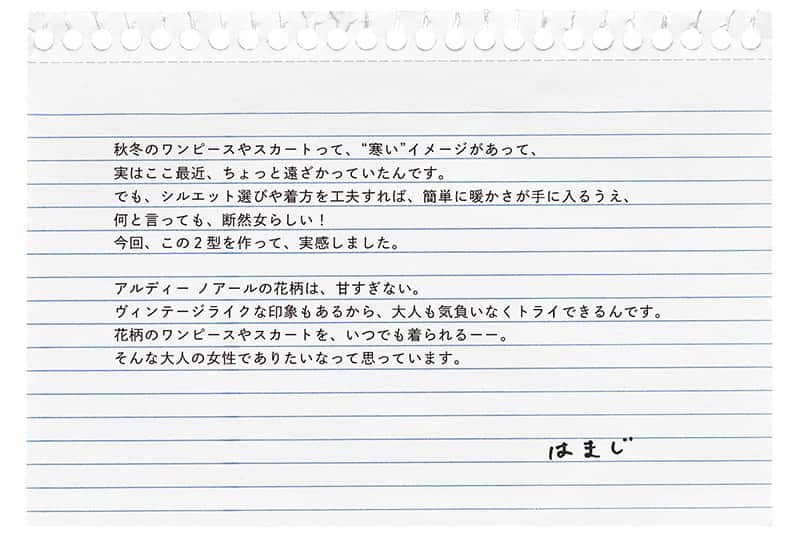 秋冬のワンピースやスカートって、“寒い”イメージがあって、
実はここ最近、ちょっと遠ざかっていたんです。
でも、シルエット選びや着方を工夫すれば、簡単に暖かさが手に入るうえ、
何と言っても、断然女らしい！
今回、この２型を作って、実感しました。
アルディー ノアールの花柄は、甘すぎない。
ヴィンテージライクな印象もあるから、大人も気負いなくトライできるんです。
花柄のワンピースやスカートを、いつでも着られるーー。
そんな大人の女性でありたいなって思っています。
はまじ